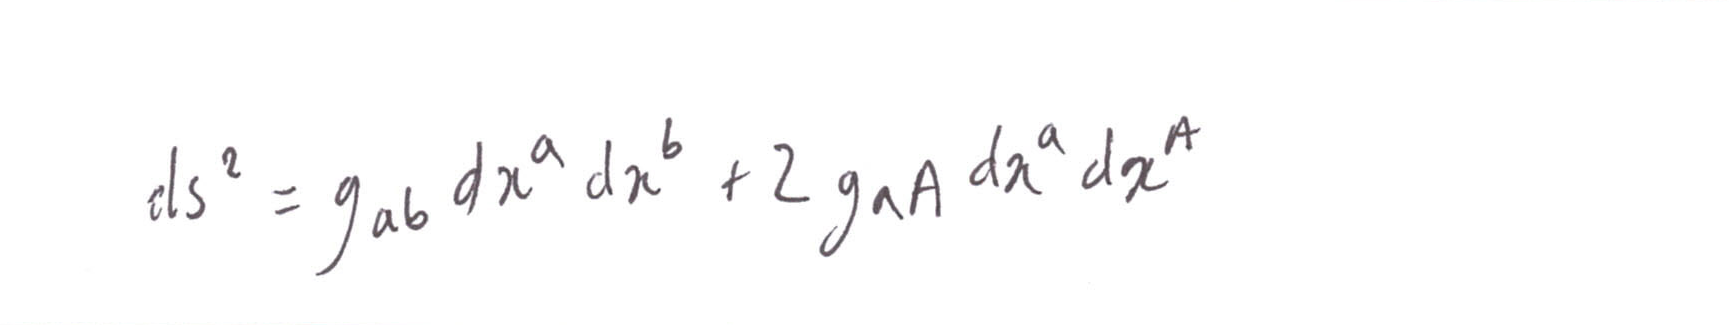 ds² = g_{ab} dx^a dx^b + 2 g_{aA} dx^a dx^A